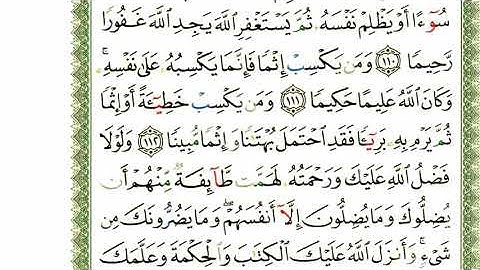 سُوٓءًا أَوْ يَظْلِمْ نَفْسَهُۥ ثُمَّ يَسْتَغْفِرِ ٱللَّهَ يَجِدِ ٱللَّهَ غَفُورًا
رَّحِيمًا ١١٠ وَمَن يَكْسِبْ إِثْمًا فَإِنَّمَا يَكْسِبُهُۥ عَلَىٰ نَفْسِهِۦۚ
وَكَانَ ٱللَّهُ عَلِيمًا حَكِيمًا ١١١ وَمَن يَكْسِبْ خَطِيٓـَٔةً أَوْ إِثْمًا
ثُمَّ يَرْمِ بِهِۦ بَرِيٓـًٔا فَقَدِ ٱحْتَمَلَ بُهْتَٰنًا وَإِثْمًا مُّبِينًا ١١٢ وَلَوْلَا
فَضْلُ ٱللَّهِ عَلَيْكَ وَرَحْمَتُهُۥ لَهَمَّت طَّآئِفَةٌ مِّنْهُمْ أَن
يُضِلُّوكَ وَمَا يُضِلُّونَ إِلَّآ أَنفُسَهُمْۖ وَمَا يَضُرُّونَكَ مِن
شَىْءٍۚ وَأَنزَلَ ٱللَّهُ عَلَيْكَ ٱلْكِتَٰبَ وَٱلْحِكْمَةَ وَعَلَّمَكَ